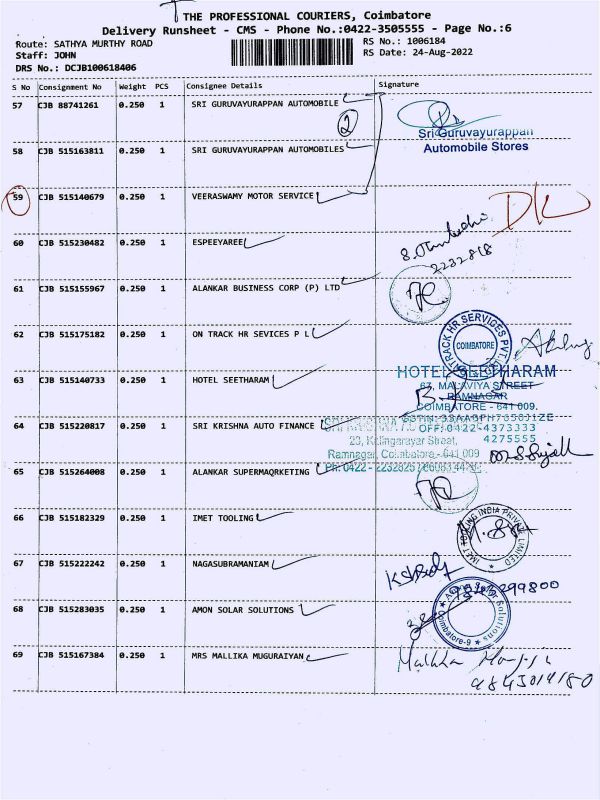 THE PROFESSIONAL COURIERS, Coimbatore
Delivery Runsheet - CMS - Phone No.:0422-3505555 - Page No.:6
Route: SATHYA MURTHY ROAD
RS No.: 1006184
Staff: JOHN
RS Date: 24-Aug-2022
DRS No.: DCJB100618406
S No Consignment No Weight PCS Consignee Details Signature
57 CJB 88741261 0.250 1 SRI GURUVAYURAPPAN AUTOMOBILE
2
Sri Guruvayurappan
Automobile Stores
58 CJB 515163811 0.250 1 SRI GURUVAYURAPPAN AUTOMOBILES
59 CJB 515140679 0.250 1 VEERASWAMY MOTOR SERVICE
60 CJB 515230482 0.250 1 ESPEEYAREE
2232818
61 CJB 515155967 0.250 1 ALANKAR BUSINESS CORP (P) LTD
62 CJB 515175182 0.250 1 ON TRACK HR SEVICES P L
TRACK HR SERVICES PVT.
COIMBATORE
63 CJB 515140733 0.250 1 HOTEL SEETHARAM
HOTEL SEETHARAM
67, MALAVIYA STREET
RAMNAGAR
COIMBATORE - 641 009.
64 CJB 515220817 0.250 1 SRI KRISHNA AUTO FINANCE
OFF: 0422-4373333
4275555
23, Kalingarayar Street,
Ramnagar, Coimbatore - 641 009
65 CJB 515264008 0.250 1 ALANKAR SUPERMAQRKETING
66 CJB 515182329 0.250 1 IMET TOOLING
IMET TOOLING INDIA PRIVATE LIMITED
67 CJB 515222242 0.250 1 NAGASUBRAMANIAM
68 CJB 515283035 0.250 1 AMON SOLAR SOLUTIONS
Solar Solutions
Coimbatore-9
69 CJB 515167384 0.250 1 MRS MALLIKA MUGURAIYAN